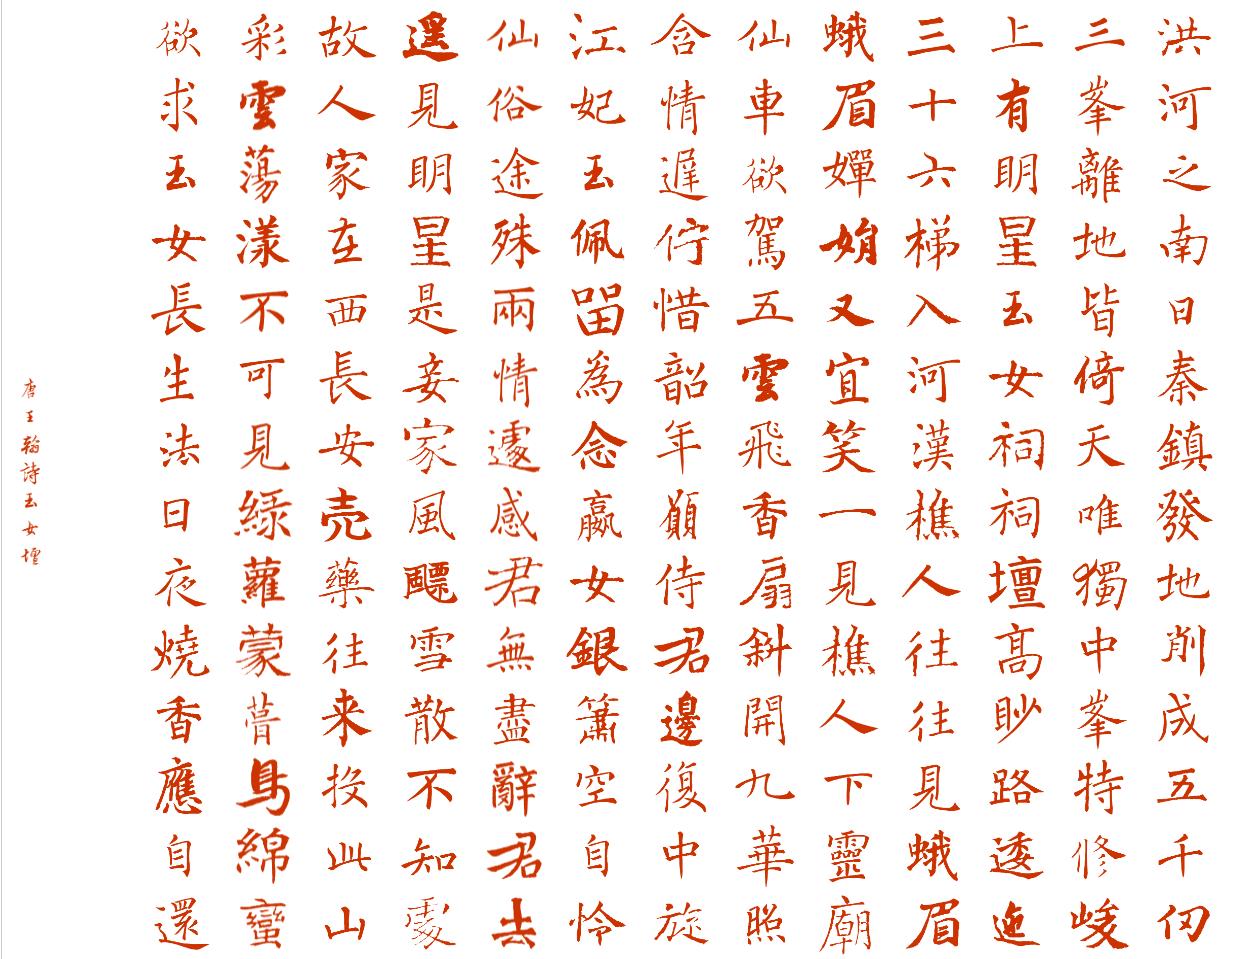 洪河之南日秦鎮發地削成五千仞
三峯離地皆倚天唯獨中峯特修峻
上有明星玉女祠祠壇高眇路逶迤
三十六梯入河漢樵人往往見蛾眉
蛾眉嬋娟又宜笑一見樵人下靈廟
仙車欲駕五雲飛香扇斜開九華照
含情遲佇惜韶年願侍君邊復中旋
江妃玉佩畱為念嬴女銀簫空自怜
仙俗途殊兩情遽感君無盡辭君去
遥見明星是妾家風飄雪散不知處
故人家在西長安売藥往来投此山
彩雲蕩漾不可見緑蘿蒙茸鳥綿蠻
欲求玉女長生法日夜燒香應自還
唐王翰詩玉女壇